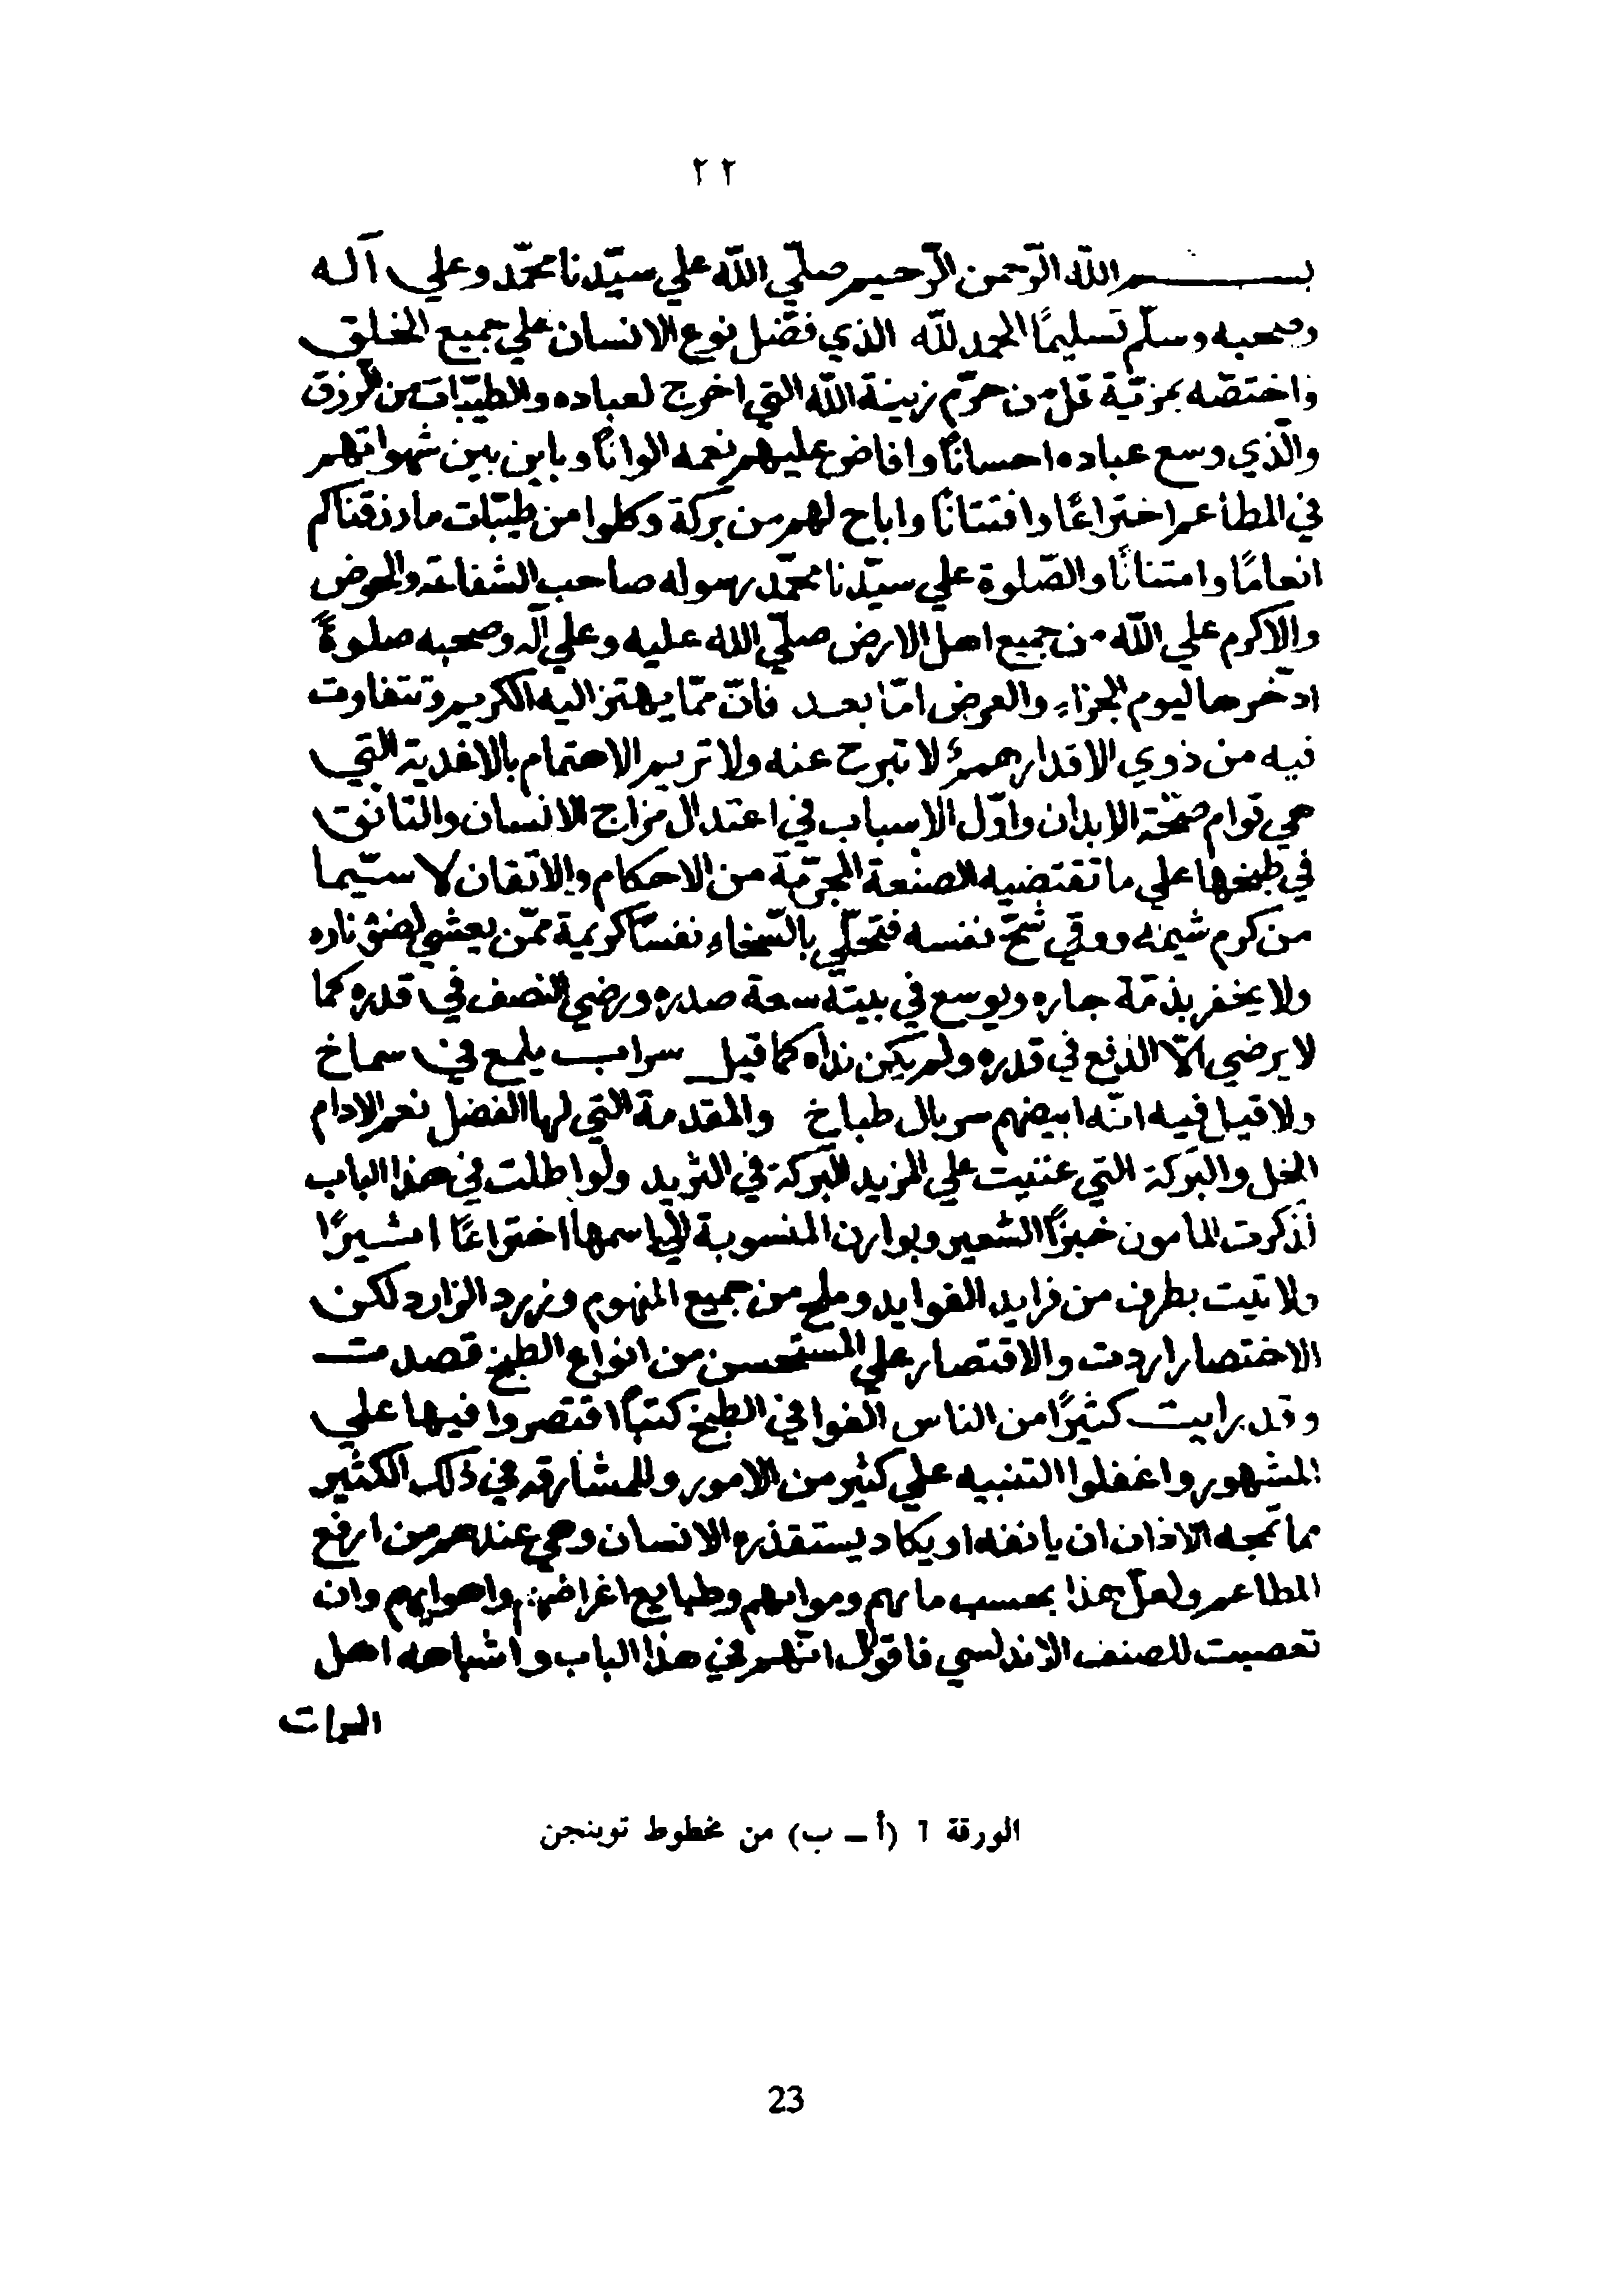 ٢٢
بسم الله الرّحمن الرّحيم صلّي اللّه علي سيّدنا محمّد وعلي آله
وصحبه وسلّم تسليمًا الحمد للّه الذي فضّل نوع الانسان علي جميع الخلق
واختصّه بمزيّة قل من حرّم زينة اللّه التي اخرج لعباده والطيّبات من الرّزق
والّذي وسع عباده احسانًا وافاض عليهم نعمه الوانًا وباين بين شهواتهم
في المطاعم اختراعًا وافتنانًا واباح لهم من بركة وكلوا من طيّبات ما رزقناكم
انعامًا وامتنانًا والصّلوة علي سيّدنا محمّد رسوله صاحب الشفاعة والحوض
والاكرم علي اللّه من جميع اهل الارض صلّي الله عليه وعلي آله وصحبه صلوةً
ادّخرها ليوم الجزاء والعرض امّا بعد فانّ ممّا يهتز اليه الكريم وتتفاوت
فيه من ذوي الاقدار همم لا تبرح عنه ولا تريم الاهتمام بالاغذية التي
هي قوام صحّة الابدان واوّل الاسباب في اعتدال مزاج الانسان والتانق
في طبخها علي ما تقتضيه الصنعة المجرّبة من الاحكام والاتقان لا سيّما
من كرم شيمه ووقي شحّ نفسه فتحلّي بالسّخاء نفسًا كريمة ممّن يعشي لضوء ناره
ولا يخفر بذمّة جاره ويوسع في بيته سعة صدره ورضي النصف في قدره كما
لا يرضي الّا الرفع في قدره ولم يكن نداه كما قيل سراب يلمع في سماخ
ولا قيل فيه انّه ابيضهم سربال طباخ والمقدمة التي لها الفضل نعم الادام
الخل والبركة التي عنيت علي المزيد البركة في الثريد ولو اطلت في هذا الباب
لذكرت المامون خبزًا الشعير وبوارن المنسوبة الي اسمها اختراعًا اثيرًا
ولاتيت بطرف من فرايد الفوايد وملح من جميع المنهوم وزرد الزارد لكن
الاختصار اردت والاقتصار علي المستحسن من انواع الطبخ قصدت
وقد رايت كثيرًا من الناس الّفوا في الطبخ كتبًا اقتصروا فيها علي
المشهور واغفلوا التنبيه علي كثير من الامور وللمشارقه في ذلك الكثير
مما تمجه الاذان ان يانفه او يكاد يستقذره الانسان وهي عندهم من ارفع
المطاعم ولعلّ هذا بحسب مايهم وموايهم وطبايع اغراضهم واهوايهم وان
تعصبت للصنف الاندلسي فاقول انّهم في هذا الباب واشباهه اهل
الورقة ٦ (أ – ب) من مخطوط توبنجن
23